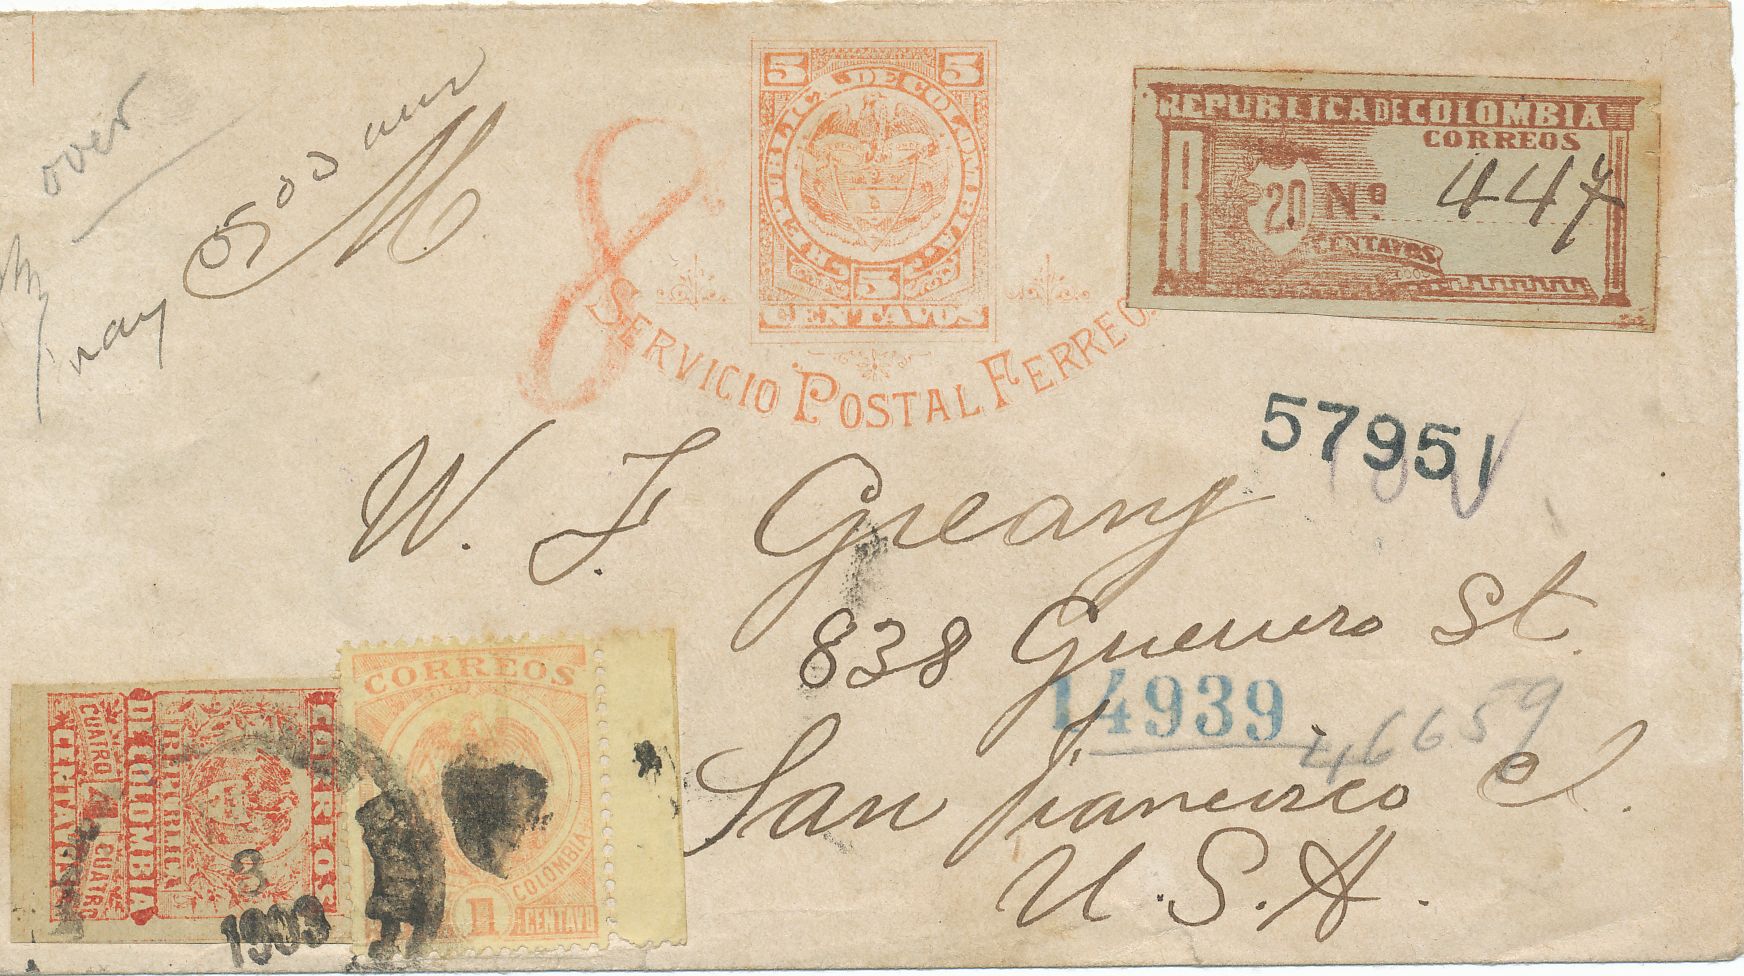 over
5 00 am
5
5
REPUBLICA DE COLOMBIA
5
CENTAVOS
SERVICIO POSTAL FERREO.
8
REPUBLICA DE COLOMBIA
CORREOS
R
20 No. 447
CENTAVOS
57951
W. F. Greany
838 Guerrero St.
14939
46659
San Francisco Cl.
U.S.A.
CORREOS
REPUBLICA
DE COLOMBIA
CUATRO 4 CUATRO
CENTAVOS
3
1903
CORREOS
COLOMBIA
1 CENTAVO